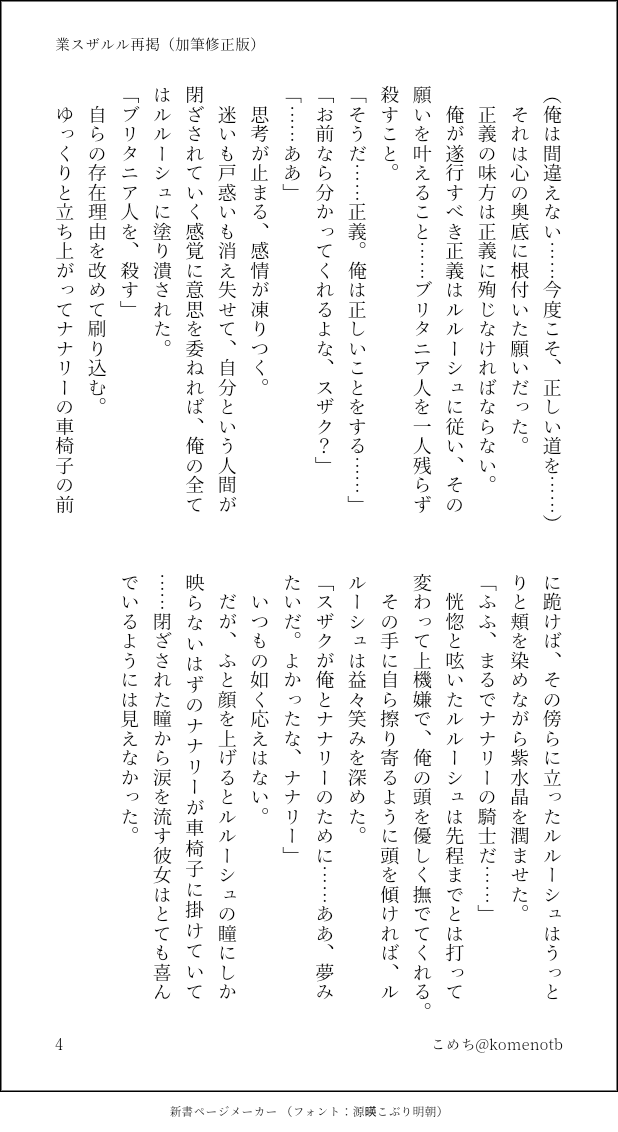 業スザルル再掲（加筆修正版）
（俺は間違えない……今度こそ、正しい道を……）
それは心の奥底に根付いた願いだった。
正義の味方は正義に殉じなければならない。
俺が遂行すべき正義はルルーシュに従い、その
願いを叶えること……ブリタニア人を一人残らず
殺すこと。
「そうだ……正義。俺は正しいことをする……」
「お前なら分かってくれるよな、スザク？」
「……ああ」
思考が止まる、感情が凍りつく。
迷いも戸惑いも消え失せて、自分という人間が
閉ざされていく感覚に意思を委ねれば、俺の全て
はルルーシュに塗り潰された。
「ブリタニア人を、殺す」
自らの存在理由を改めて刷り込む。
ゆっくりと立ち上がってナナリーの車椅子の前
に跪けば、その傍らに立ったルルーシュはうっと
りと頬を染めながら紫水晶を潤ませた。
「ふふ、まるでナナリーの騎士だ……」
恍惚と呟いたルルーシュは先程までとは打って
変わって上機嫌で、俺の頭を優しく撫でてくれる。
その手に自ら擦り寄るように頭を傾ければ、ル
ルーシュは益々笑みを深めた。
「スザクが俺とナナリーのために……ああ、夢み
たいだ。よかったな、ナナリー」
いつもの如く応えはない。
だが、ふと顔を上げるとルルーシュの瞳にしか
映らないはずのナナリーが車椅子に掛けていて
……閉ざされた瞳から涙を流す彼女はとても喜ん
でいるようには見えなかった。
4
こめち@komenotb
新書ページメーカー（フォント：源暎こぶり明朝）